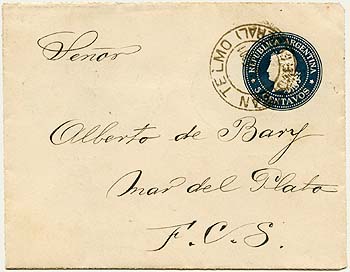 Señor
SAN TELMO
REPUBLICA ARGENTINA
5 CENTAVOS
Alberto de Bary
Mar del Plata
F. C. S.